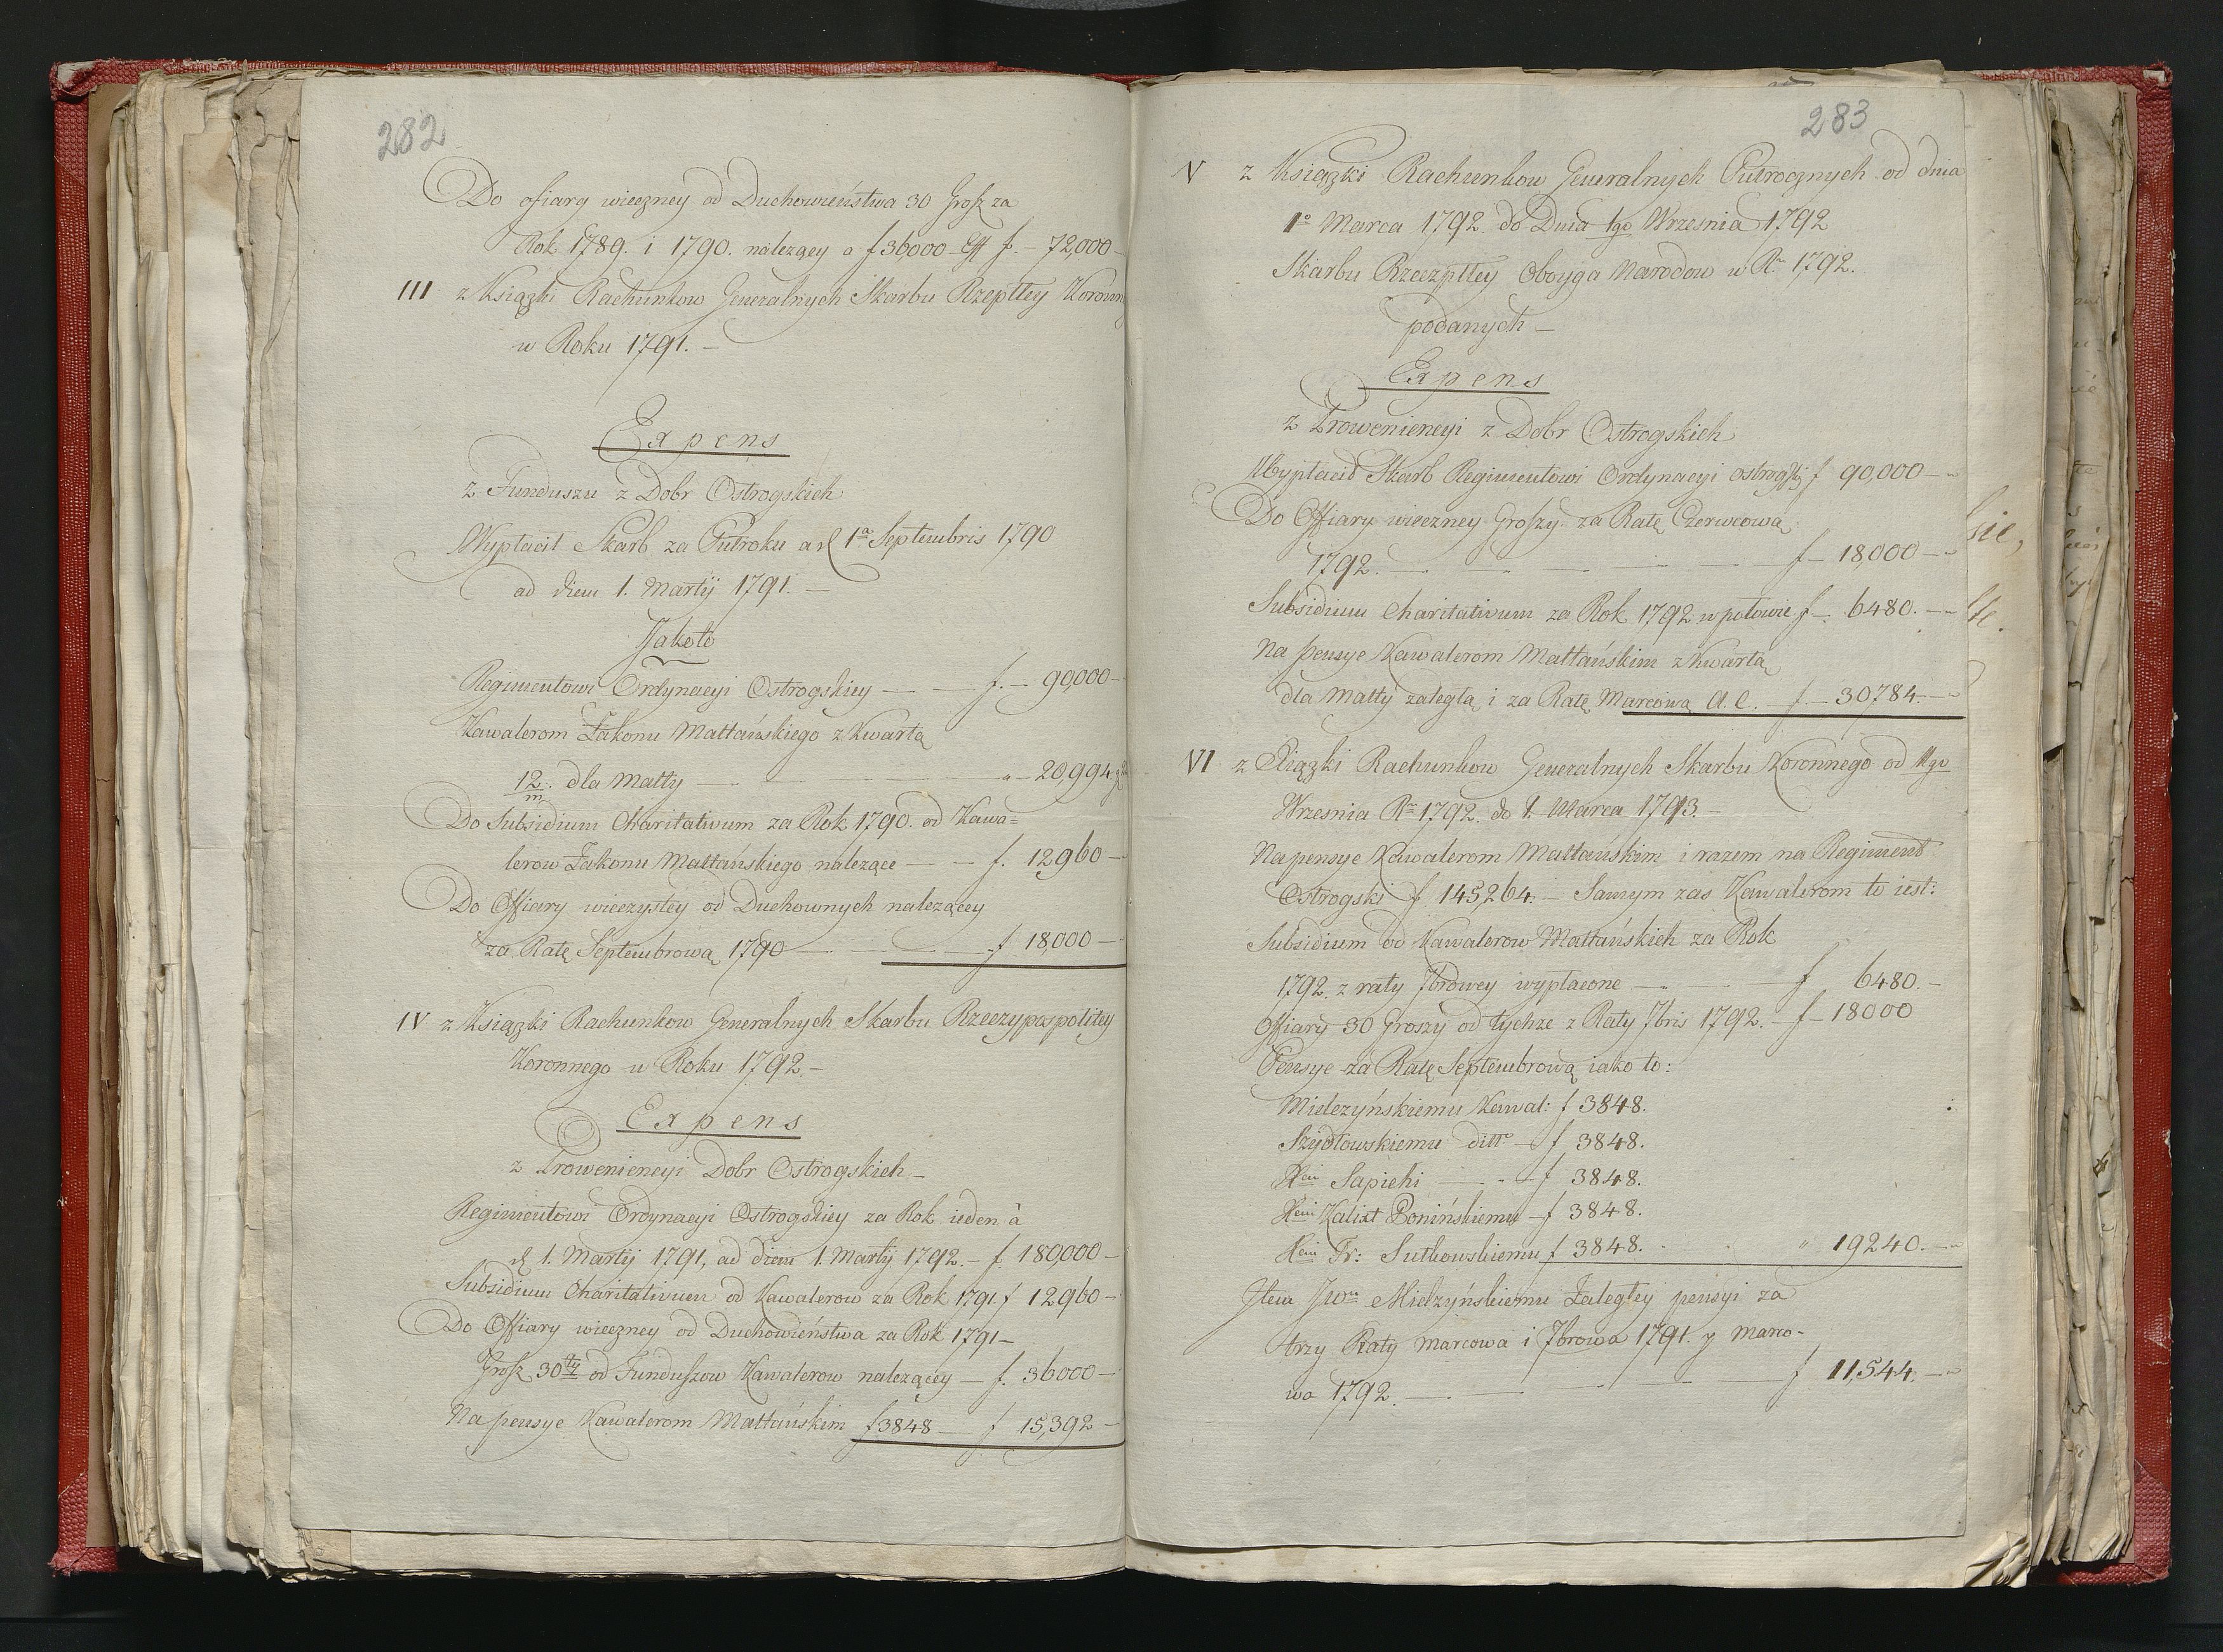 282
Do ofiary wieczney od Duchowieństwa 30 Grosz za
Rok 1789. i 1790. nalezący a f 36,000 Eff f. – 72,000 –
III z Ksiązki Rachunkow Generalnych Skarbu Rzeptłey
w Roku 1791. –
Expens
z Funduszu z Dobr Ostrogskich
Wypłacił Skarb za Pułroku a d 1a Septembris 1790
ad diem 1. Martij 1791. –
Jako to
Regimentowi Ordynacyi Ostrogskiey — — f. – 90,000 –
Kawalerom Zakonu Maltańskiego z Kwartą
12/m. dla Malty — " – 20,994
Do Subsidium Charitativum za Rok 1790. od Kawa=
lerow Zakonu Maltańskiego nalezące — – f. 12960 –
Do Offiary wieczystey od Duchownych nalezącey
za Ratę Septembrową 1790 — — f 18,000 –
IV z Ksiązki Rachunkow Generalnych Skarbu Rzeczypospolitey
Koronnego w Roku 1792. –
Expens
z Proweniencyi Dobr Ostrogskich –
Regimentowi Ordynacyi Ostrogskiey za Rok ieden à
d 1. Martij 1791, ad diem 1. Martij 1792. – f. 180,000 –
Subsidium Charitativum od Kawalerow za Rok 1791. f 12960 –
Do Offiary wieczney od Duchowieństwa za Rok 1791 –
Grosz 30ty od Funduszow Kawalerow nalezącey — f. 36000 –
Na pensye Kawalerom Maltańskim f 3848 — f 15,392 –
283
V z Ksiązki Rachunkow Generalnych Pułrocznych od dnia
1o Marca 1792. do Dnia 1go Wrzesnia 1792
Skarbu Rzeczptłey Oboyga Narodow w R. 1792.
podanych –
Expens
z Prowenienencyi z Dobr Ostrogskich
Wypłacił Skarb Regimentowi Ordynacyi ostrogskiey f 90,000 –
Do Offiary wieczney Groszy za Ratę Czerwcową
1792. — — — f – 18,000 –
Subsidium Charitativum za Rok 1792 w połowie f – 6480. –
Na pensye Kawalerom Maltańskim z Kwartą
dla Malty zaległą i za Ratę Marcową A. C. – f. – 30784. –
VI z Xiązki Rachunkow Generalnych Skarbu Koronnego od 1go
Wrzesnia R. 1792. do 1. Marca 1793. –
Na pensye Kawalerom Maltańskim i razem na Regiment
Ostrogski f. 145,264. – Samym zas Kawalerom to iest:
Subsidium od Kawalerow Maltańskich za Rok
1792. z raty 7browey wypłacone — — f 6480. –
Offiary 30 Groszy od tychze z Raty 7bris 1792. – f – 18000
Pensye za Ratę Septembrową iako to:
Mielzyńskiemu Kawal: f 3848.
Szydłowskiemu ditto – f 3848.
Xciu Sapiehi — – f 3848.
Xciu Kalixt Ponińskiemu – f 3848.
Xciu Fr: Sułkowskiemu f 3848. " 19240. –
Item JWu Mielzyńskiemu Zaległey pensyi za
trzy Raty marcowa i 7browa 1791. y marco-
wa 1792. — — — f 11,544. –